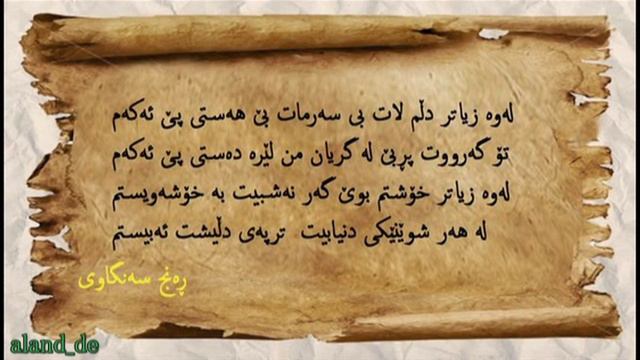 لەوە زیاتر دڵم لات بی سەرمات بێ هەستی پێ ئەکەم
تۆ گەرووت پڕبێ لە گریان من لێرە دەستی پێ ئەکەم
لەوە زیاتر خۆشتم بوێ گەر نەشبیت بە خۆشەویستم
لە هەر شوێنێکی دنیابیت ترپەی دڵیشت ئەبیستم
ڕەنج سەنگاوی
aland_de